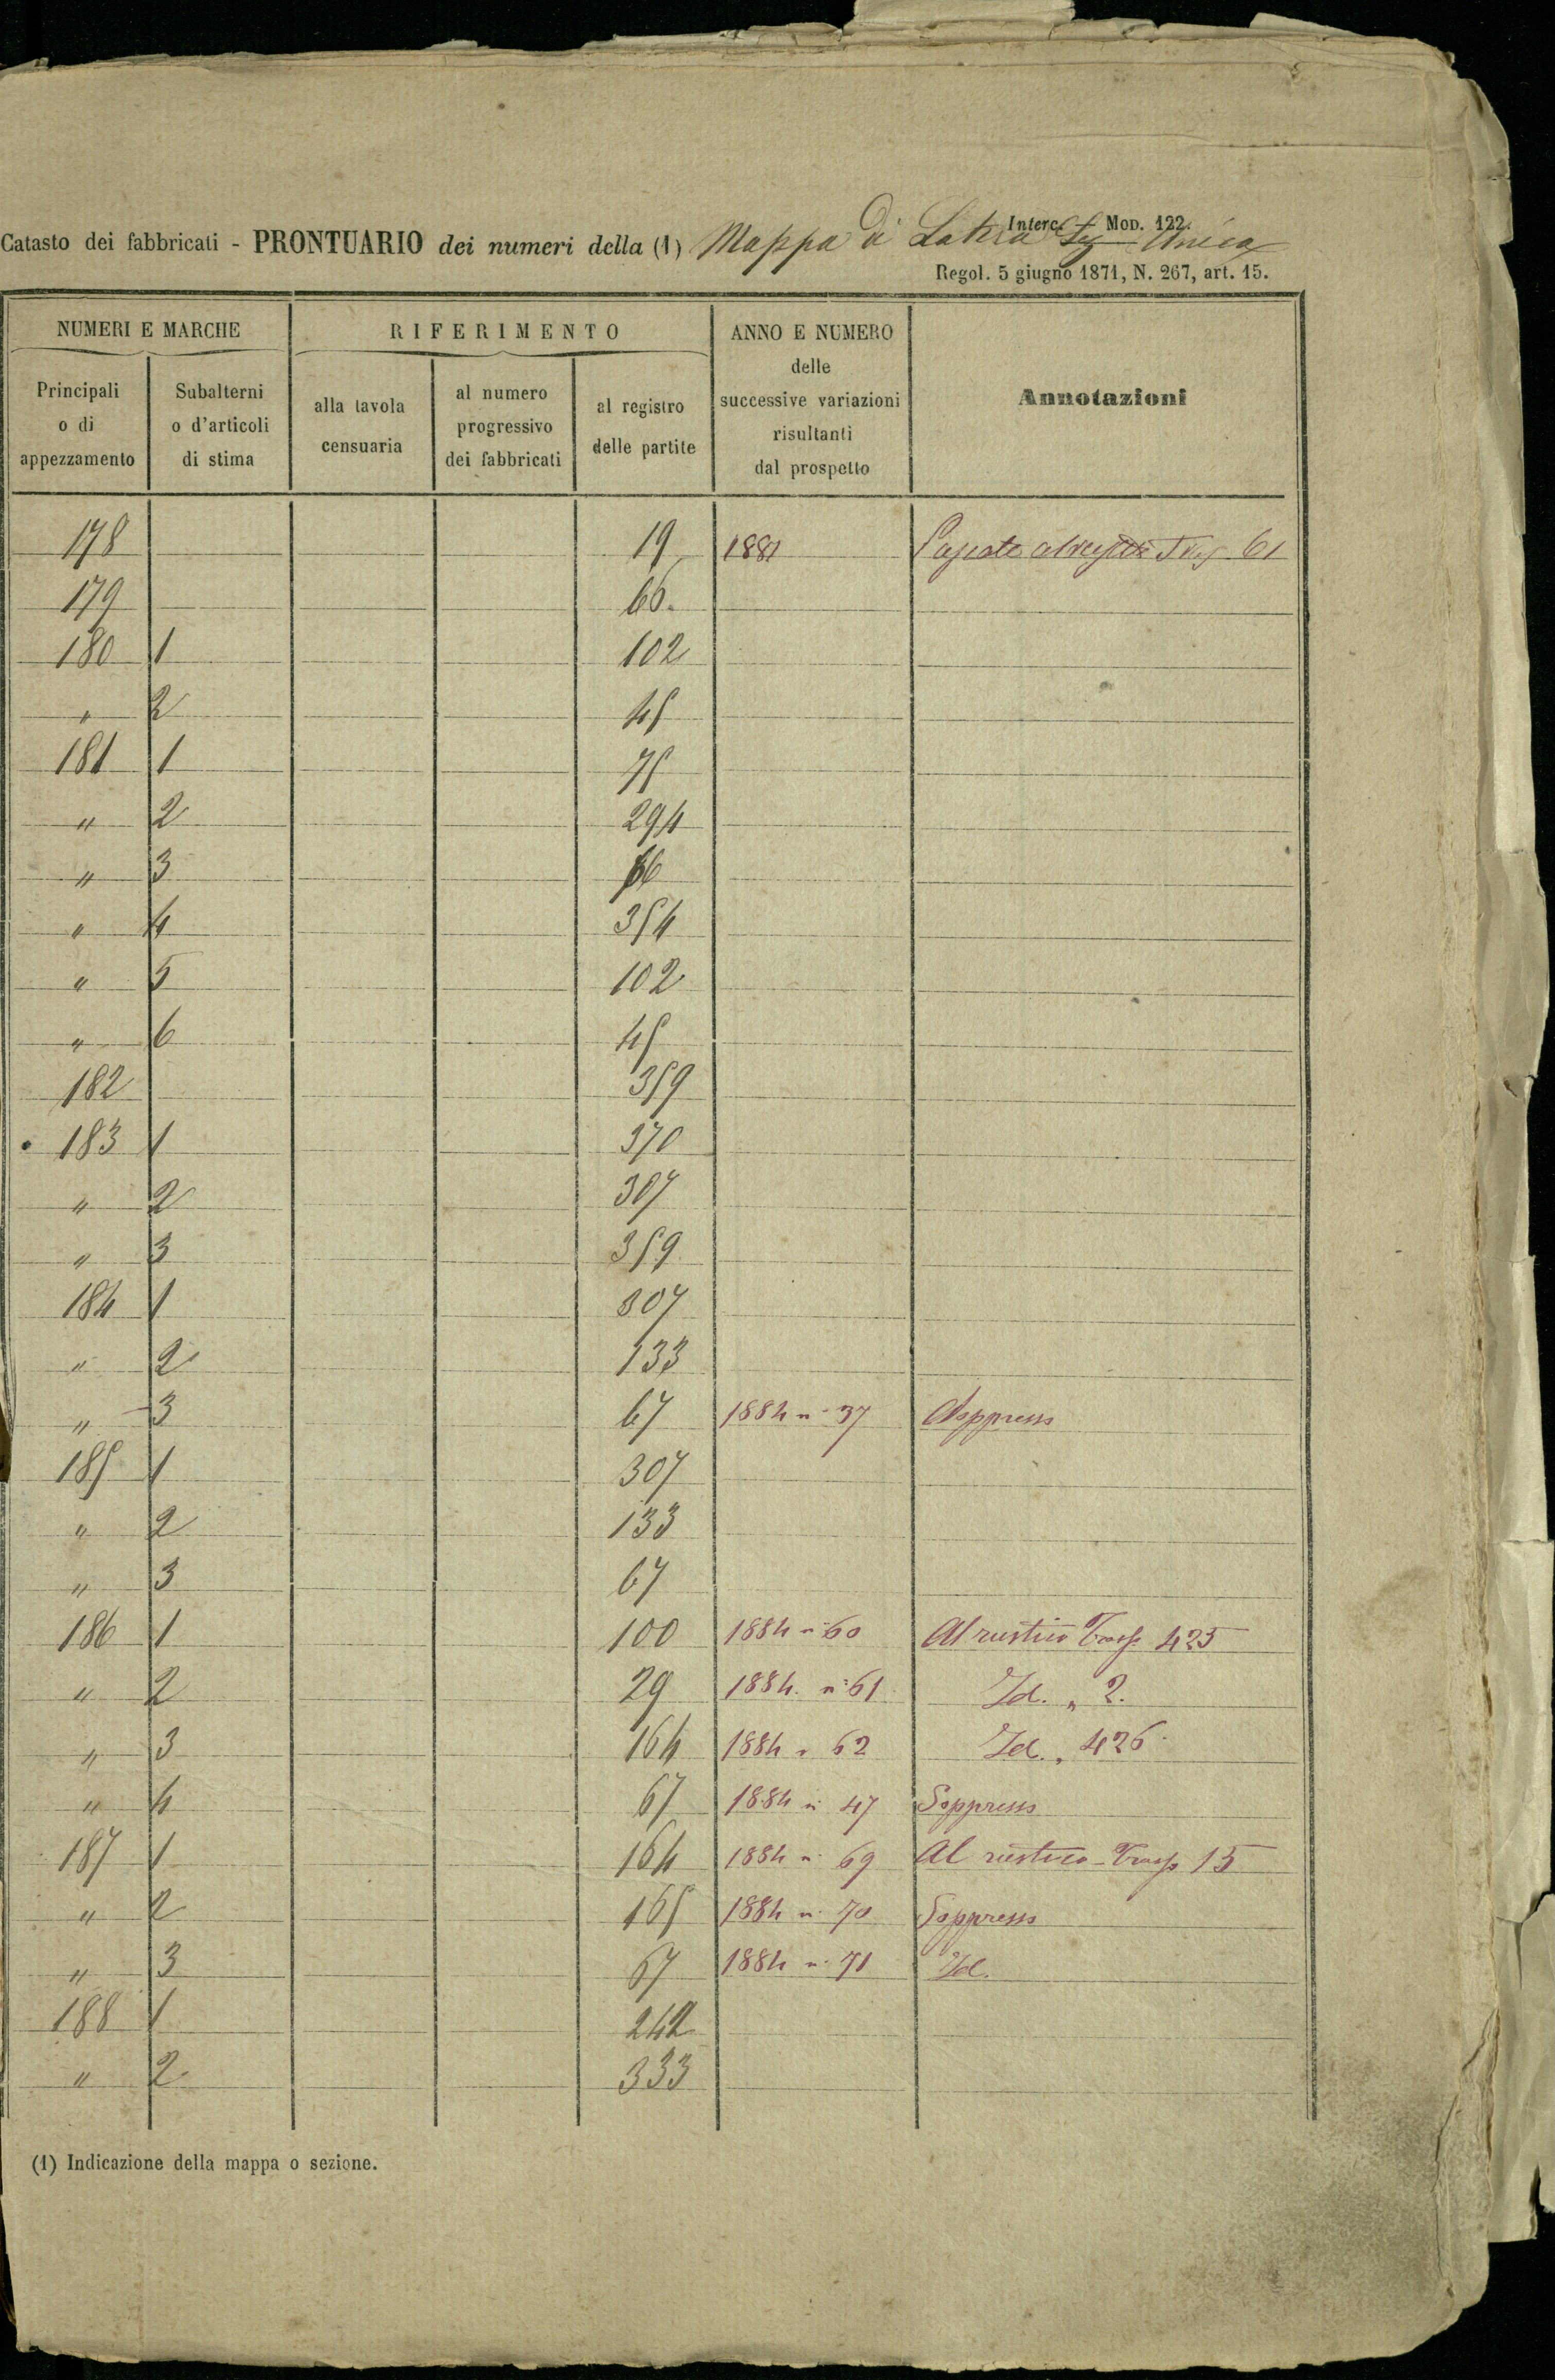 Interc. Mod. 122.
Catasto dei fabbricati - PRONTUARIO dei numeri della (1) Mappa di Latera Sez Unica
Regol. 5 giugno 1871, N. 267, art. 15.
NUMERI E MARCHE RIFERIMENTO ANNO E NUMERO delle successive variazioni risultanti dal prospetto Annotazioni
Principali o di appezzamento Subalterni o d'articoli di stima alla tavola censuaria al numero progressivo dei fabbricati al registro delle partite
178 19 1881 61
179 66
180 1 102
" 2 45
181 1 75
" 2 294
" 3 66
" 4 354
" 5 102
" 6 45
182 359
183 1 370
" 2 307
" 3 359
184 1 307
" 2 133
" 3 67 1884 n. 37 Soppresso
185 1 307
" 2 133
" 3 67
186 1 100 1884 n. 60 Al rustico Trasp 425
" 2 29 1884. n. 61 Id. " 2.
" 3 164 1884 n 62 Id. " 426
" 4 67 1884 n. 47 Soppresso
187 1 164 1884 n. 69 Al rustico - Trasp 15
" 2 165 1884 n. 70 Soppresso
" 3 67 1884 n. 71 Id.
188 1 242
" 2 333
(1) Indicazione della mappa o sezione.